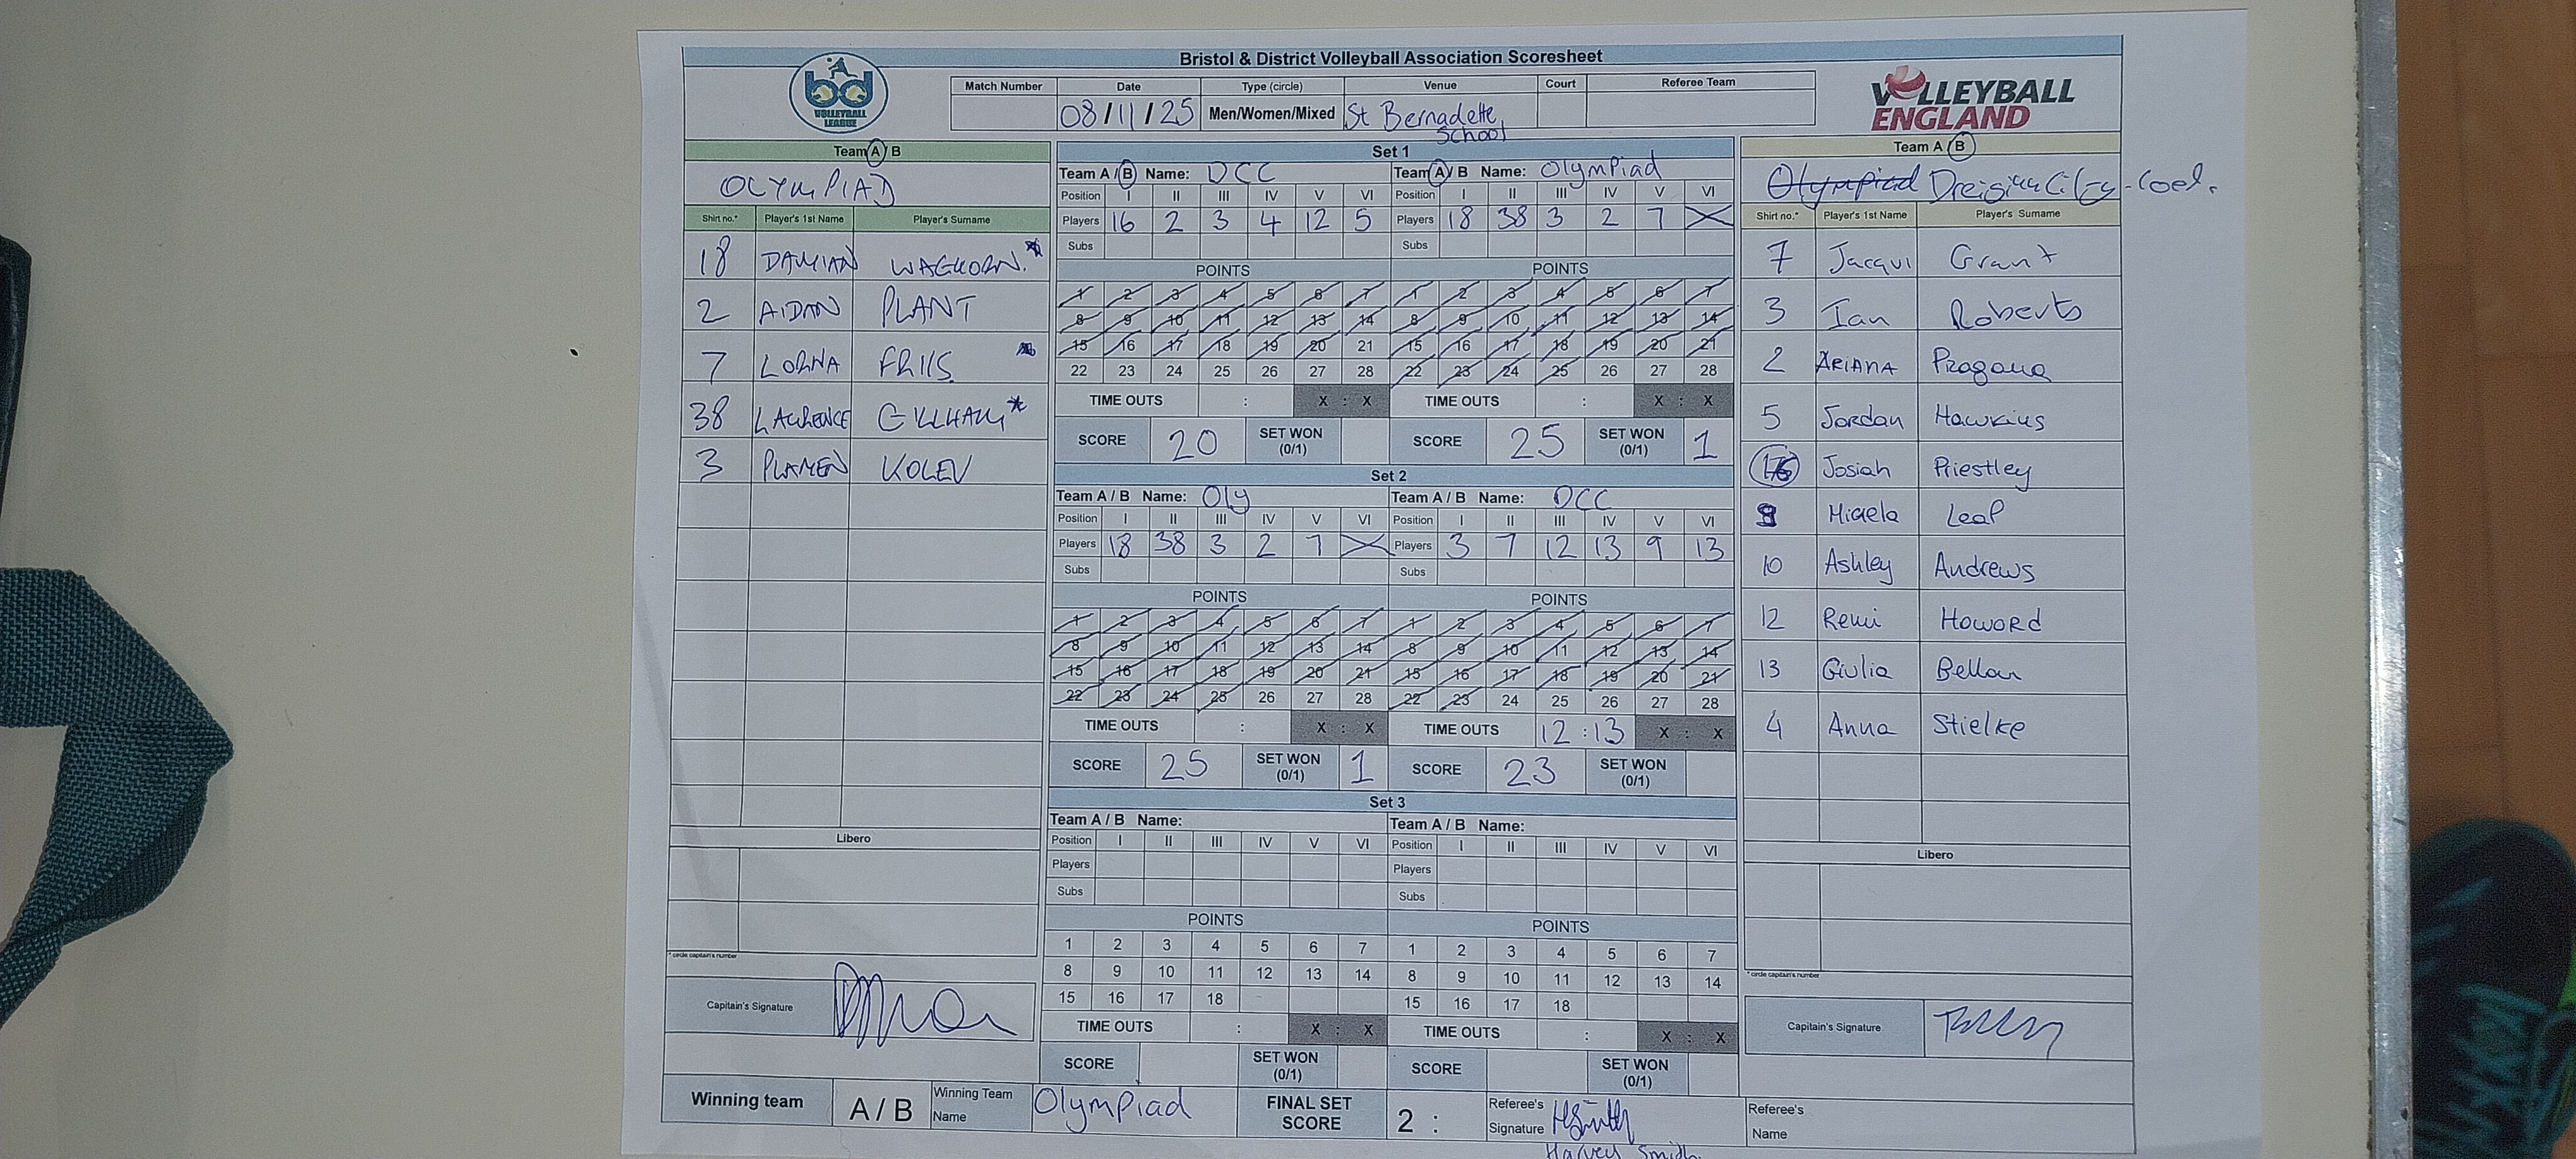 Bristol & District Volleyball Association Scoresheet
bd VOLLEYBALL LEAGUE
Match Number Date Type (circle) Venue Court Referee Team
08/11/25 Men/Women/Mixed St Bernadette School
VOLLEYBALL ENGLAND
Team A / B
OLYMPIAD
Shirt no.* Player's 1st Name Player's Surname
18 DAMIAN WAGHORN.*
2 AIDAN PLANT
7 LORNA FRIIS
38 LAURENCE GILLHAM*
3 PLAMEN KOLEV
Libero
* circle captain's number
Capitain's Signature
Set 1
Team A / B Name: DCC Team A / B Name: Olympiad
Position I II III IV V VI Position I II III IV V VI
Players 16 2 3 4 12 5 Players 18 38 3 2 7
Subs Subs
POINTS POINTS
1 2 3 4 5 6 7 1 2 3 4 5 6 7
8 9 10 11 12 13 14 8 9 10 11 12 13 14
15 16 17 18 19 20 21 15 16 17 18 19 20 21
22 23 24 25 26 27 28 22 23 24 25 26 27 28
TIME OUTS : X : X TIME OUTS : X : X
SCORE 20 SET WON (0/1) SCORE 25 SET WON (0/1) 1
Set 2
Team A / B Name: Oly Team A / B Name: DCC
Position I II III IV V VI Position I II III IV V VI
Players 18 38 3 2 7 Players 3 7 12 13 9 13
Subs Subs
POINTS POINTS
1 2 3 4 5 6 7 1 2 3 4 5 6 7
8 9 10 11 12 13 14 8 9 10 11 12 13 14
15 16 17 18 19 20 21 15 16 17 18 19 20 21
22 23 24 25 26 27 28 22 23 24 25 26 27 28
TIME OUTS : X : X TIME OUTS 12 : 13 X : X
SCORE 25 SET WON (0/1) 1 SCORE 23 SET WON (0/1)
Set 3
Team A / B Name: Team A / B Name:
Position I II III IV V VI Position I II III IV V VI
Players Players
Subs Subs
POINTS POINTS
1 2 3 4 5 6 7 1 2 3 4 5 6 7
8 9 10 11 12 13 14 8 9 10 11 12 13 14
15 16 17 18 15 16 17 18
TIME OUTS : X : X TIME OUTS : X : X
SCORE SET WON (0/1) SCORE SET WON (0/1)
Team A / B
Olympiad
Shirt no.* Player's 1st Name Player's Surname
7 Jacqui Grant
3 Ian Roberts
2 ARIANA Pragana
5 Jordan Hawkins
16 Josiah Priestley
Micaela Leal
10 Ashley Andrews
12 Remi HowaRd
13 Giulia Bellan
4 Anna Stielke
Libero
* circle captain's number
Capitain's Signature
Winning team A / B Winning Team Name Olympiad FINAL SET SCORE 2 : Referee's Signature HSmith Referee's Name
Harvey Smith